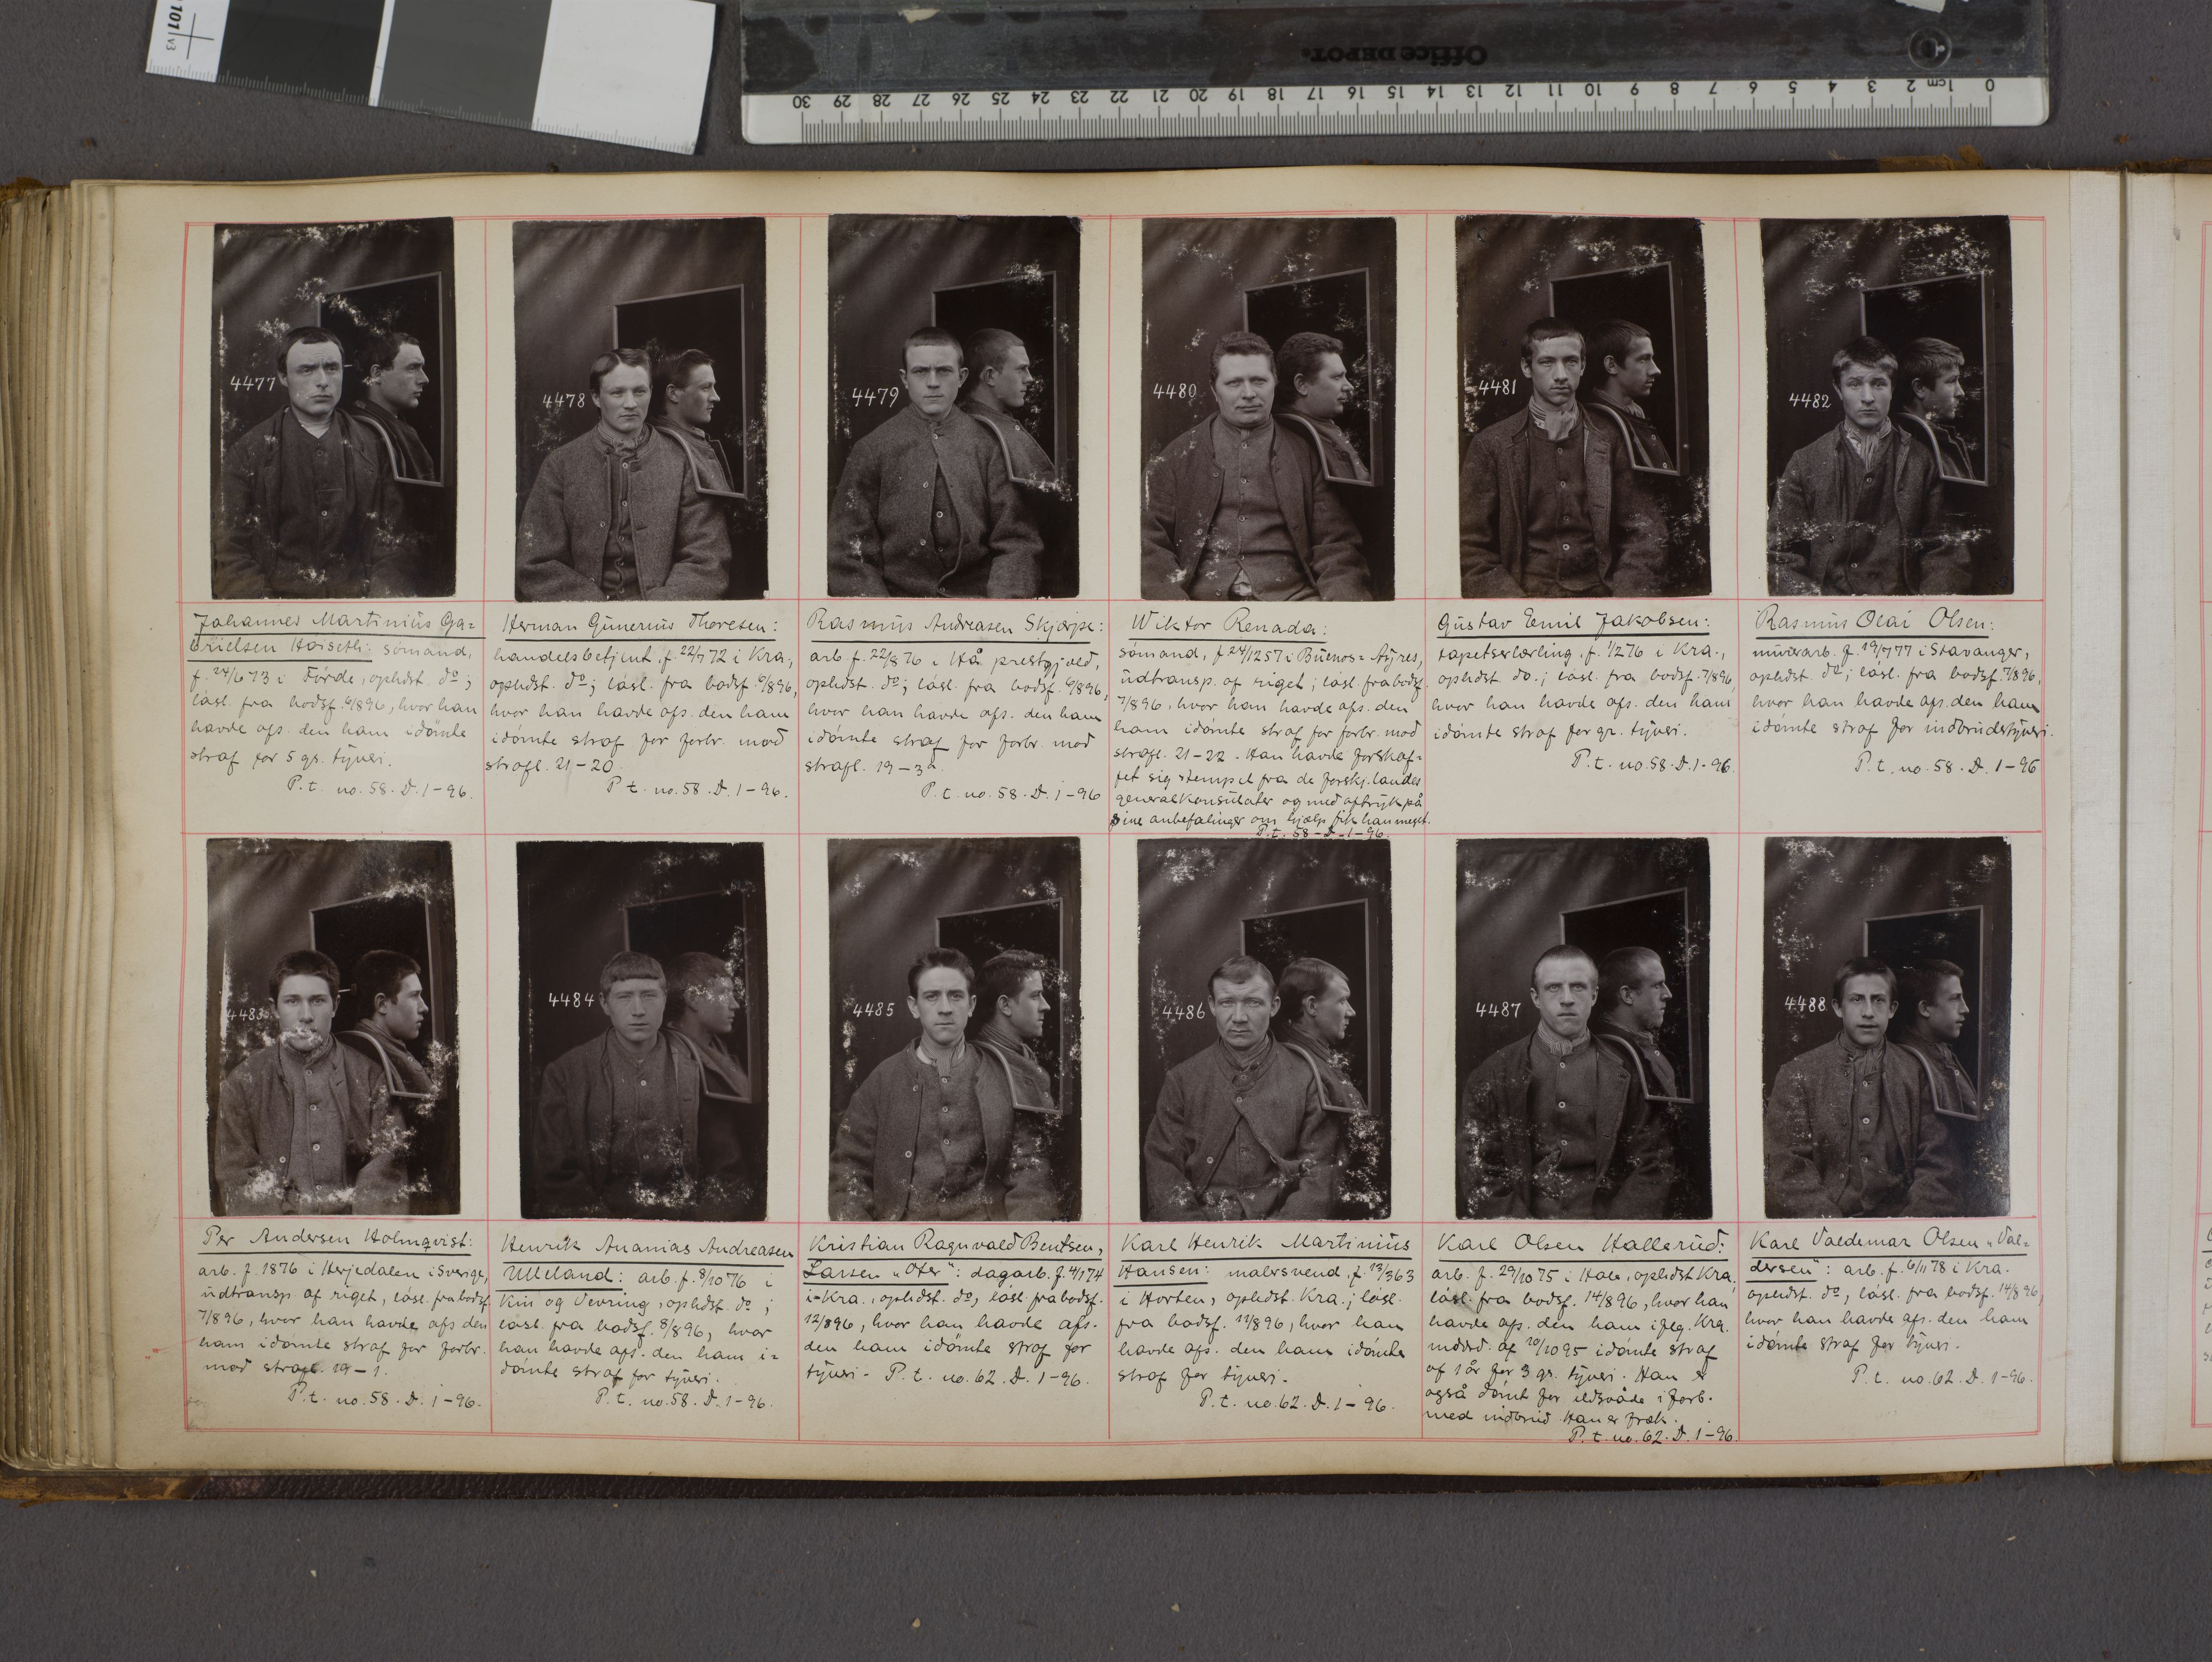 101 v3
Office DEPOT.
30 29 28 27 26 25 24 23 22 21 20 19 18 17 16 15 14 13 12 11 10 9 8 7 6 5 4 3 2 1cm 0
4477
4478
4479
4480
4481
4482
Johannes Martinius Ga=
brielsen Hoiseth: sömand,
f. 24/6 73 i Förde, ophdst. do;
lösl. fra bodsf. 6/8 96, hvor han
havde afs. den ham idömte
straf for 5 gr. tyveri.
P. t. no. 58. D. 1-96.
Herman Gunerius Thoresen:
handelsbetjent, f. 22/7 72 i Kra.,
ophdst. do; lösl. fra bodsf. 6/8 96,
hvor han havde afs. den ham
idömte straf for forbr. mod
strafl. 21-20.
P. t. no. 58. D. 1-96.
Rasmus Andreasen Skjærpe:
arb. f. 22/8 76 i Hå prestgjæld,
ophdst. do; lösl. fra bodsf. 6/8 96,
hvor han havde afs. den ham
idömte straf for forbr. mod
strafl. 19-3a.
P. t. no. 58. D. 1-96
Wiktor Renada:
sömand, f. 24/12 57 i Buenos=Ayres,
udtransp. af riget; lösl. fra bodsf.
7/8 96, hvor han havde afs. den
ham idömte straf for forbr. mod
strafl. 21-22. Han havde forskaf=
fet sig stempel fra de forskj. landes
generalkonsulater og med aftryk på
sine anbefalinger om hjælp fik han meget.
P. t. 58-D-1-96.
Gustav Emil Jakobsen:
tapetserlærling, f. 1/2 76 i Kra.,
ophdst. do.; lösl. fra bodsf. 7/8 96,
hvor han havde afs. den ham
idömte straf for gr. tyveri.
P. t. no. 58. D. 1-96.
Rasmus Olai Olsen:
murerarb. f. 19/7 77 i Stavanger,
ophdst. do; lösl. fra bodsf. 7/8 96,
hvor han havde afs. den ham
idömte straf for indbrudstyveri.
P. t. no. 58. D. 1-96
4483
4484
4485
4486
4487
4488
Per Andersen Holmqvist:
arb. f. 1876 i Herjedalen i Sverige,
udtransp. af riget, lösl. fra bodsf.
7/8 96, hvor han havde afs. den
ham idömte straf for forbr.
mod strafl. 19-1.
P. t. no. 58. D. 1-96.
Henrik Ananias Andreasen
Ulleland: arb. f. 8/10 76 i
Kin og Vevring, ophdst. do;
lösl. fra bodsf. 8/8 96, hvor
han havde afs. den ham i=
dömte straf for tyveri.
P. t. no. 58. D. 1-96.
Kristian Ragnvald Bentsen,
Larsen "Oter": dagarb. f. 4/1 74
i Kra., ophdst. do, lösl. fra bodsf.
12/8 96, hvor han havde afs.
den ham idömte straf for
tyveri. P. t. no. 62. D. 1-96.
Karl Henrik Martinius
Hansen: malersvend, f. 13/3 63
i Horten, ophdst. Kra.; lösl.
fra bodsf. 11/8 96, hvor han
havde afs. den ham idömte
straf for tyveri.
P. t. no. 62. D. 1-96.
Karl Olsen Hallerud:
arb. f. 29/10 75 i Hole, ophdst Kra.,
lösl. fra bodsf. 14/8 96, hvor han
havde afs. den ham iflg. Kra.
mdrd. af 10/10 95 idömte straf
af 1 år for 3 gr. tyveri. Han er
også dömt for ildsvåde i forb.
med indbrud. Han er fræk.
P. t. no. 62. D. 1-96.
Karl Valdemar Olsen "Val=
dersen": arb. f. 6/11 78 i Kra.
ophdst. do, lösl. fra bodsf. 14/8 96,
hvor han havde afs. den ham
idömte straf for tyveri.
P. t. no. 62. D. 1-96.